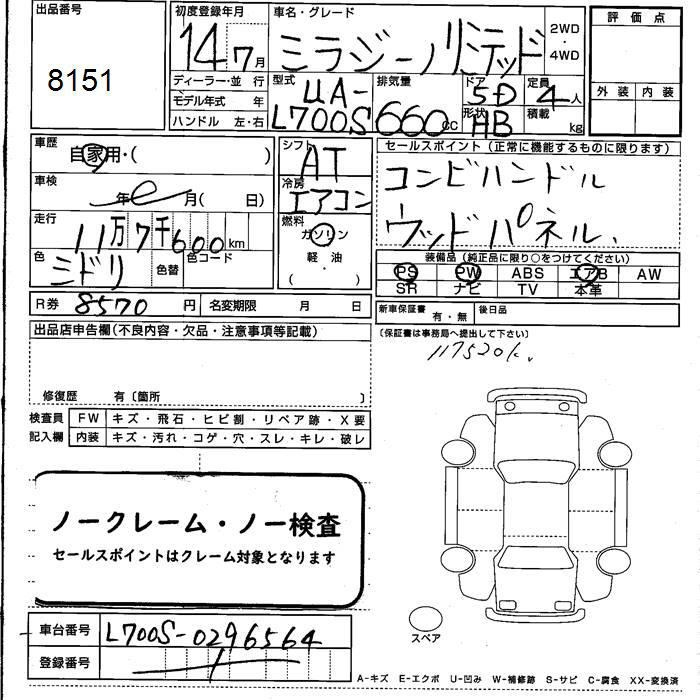 出品番号
8151
初度登録年月
14 7月
車名・グレード
ミラジーノリミテッド
2WD
・
4WD
評価点
外装 内装
ディーラー・並 行
モデル年式 年
ハンドル 左・右
型式
UA-
L700S
排気量
660cc
ドア
5D
形状
HB
定員
4人
積載
kg
車歴
自家用・( )
車検
年 月( 日)
走行
11万7千600km
色
ミドリ
色替
色コード
シフト
AT
冷房
エアコン
燃料
ガソリン
軽油
( )
セールスポイント(正常に機能するものに限ります)
コンビハンドル
ウッドパネル、
装備品(純正品に限り○をつけてください)
PS PW ABS エアB AW
SR ナビ TV 本革
R券 8570円 名変期限 月 日
新車保証書
有・無
後日品
〔保証書は事務局へ提出して下さい〕
117520k
出品店申告欄(不良内容・欠品・注意事項等記載)
修復歴 有〔箇所 〕
検査員
記入欄
FW キズ・飛石・ヒビ割・リペア跡・X要
内装 キズ・汚れ・コゲ・穴・スレ・キレ・破レ
ノークレーム・ノー検査
セールスポイントはクレーム対象となります
車台番号 L700S-0296564
登録番号
スペア
A-キズ E-エクボ U-凹み W-補修跡 S-サビ C-腐食 XX-変換済